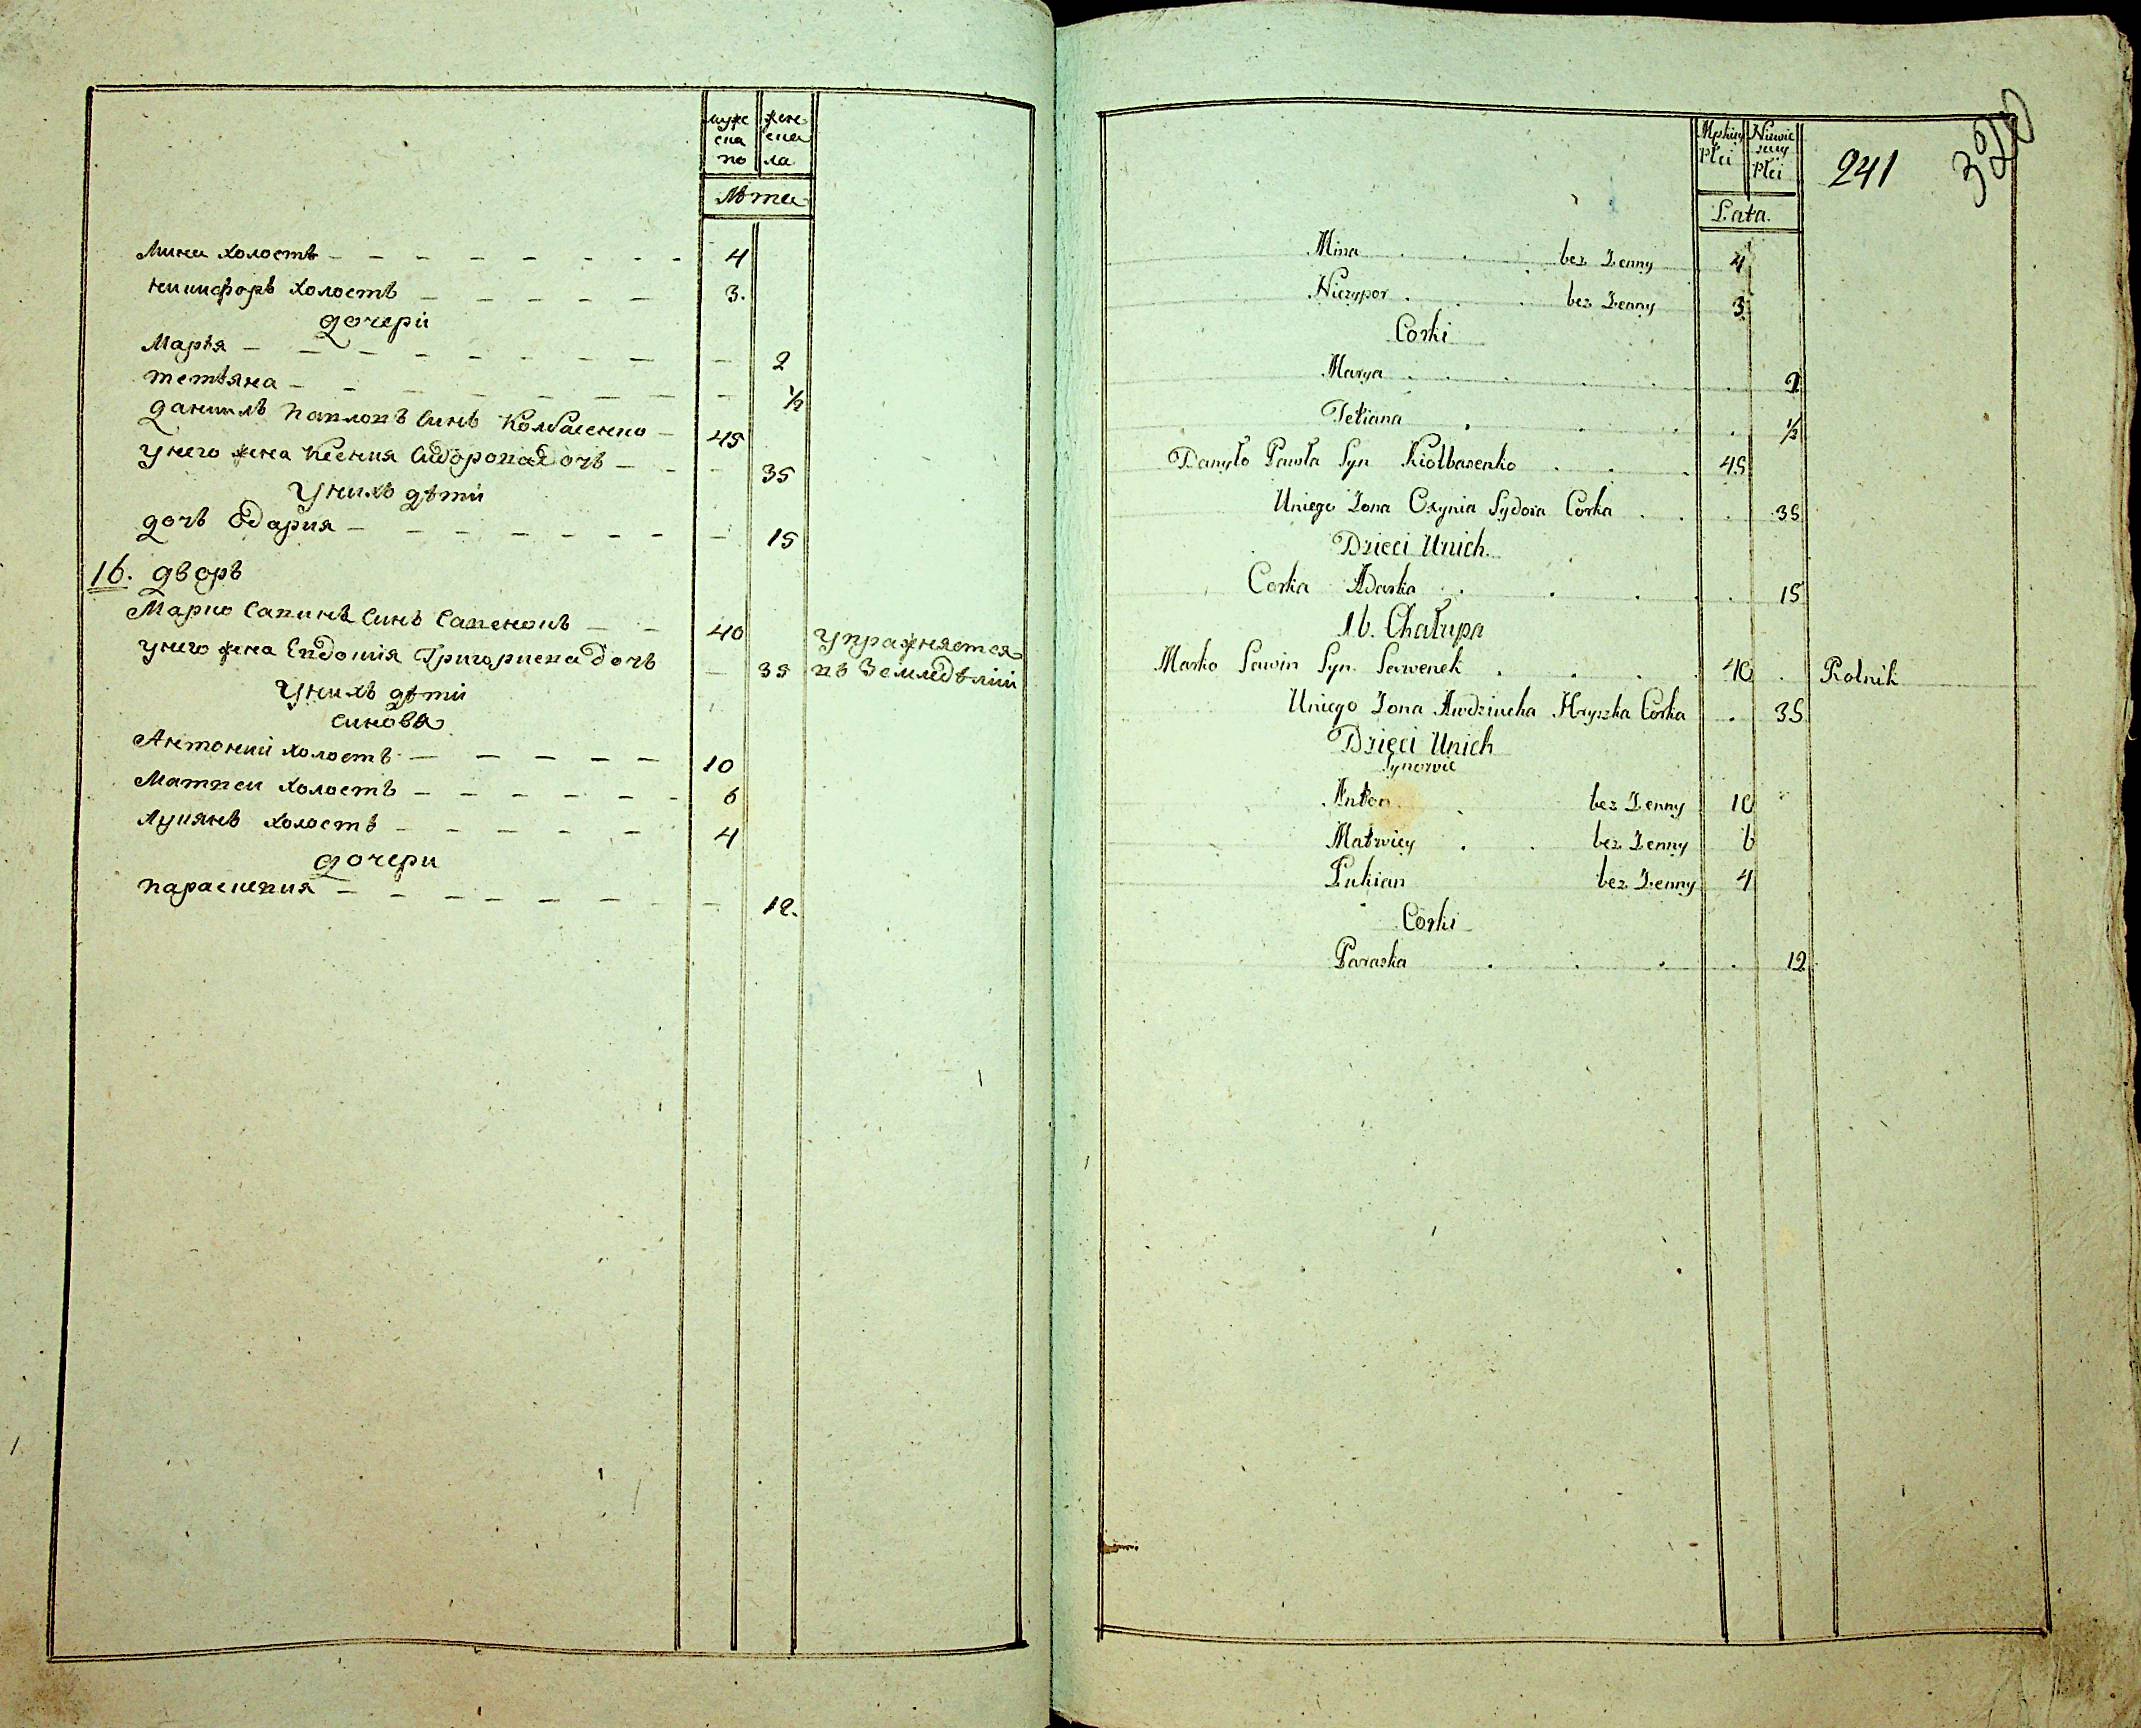 муже
ска
го
жен
ска
ла
Лѣта
Мина холостъ 4
никифоръ холостъ 3.
дочери
Марья 2
тетѣяна 1/2
данилъ павловъ синъ Колбасенко 45
унего жена Ксения Сидорова дочъ 35
Унихъ дѣти
дочъ Одария 15
16. дворъ
Марко Савинъ Синъ Савенокъ 40 упражняется
унего жена Евдокия Григориева дочъ 35 въ Земледѣлии
Унихъ дѣти
синовя
Антоний холостъ 10
Матвеи холостъ 6
лукянъ холостъ 4
дочери
параскевия 12.
Męskiey
Płci
Niewie
sciey
Płci
241
320
Lata.
Mina bez Zenny 4
Niczypor bez Zenny 3
Corki
Marya 2
Tetiana 1/2
Danyło Pawła Syn Kiołbasenko 45
Uniego Zona Oxynia Sydora Corka 35
Dzieci Unich
Corka Adarka 15
16. Chałupa
Marko Sawin Syn Sawenek 40 Rolnik
Uniego Zona Awdziucha Hryszka Corka 35
Dzieci Unich
Synowie
Anton bez Zenny 10
Matwiey bez Zenny 6
Łukian bez Zenny 4
Corki
Paraska 12